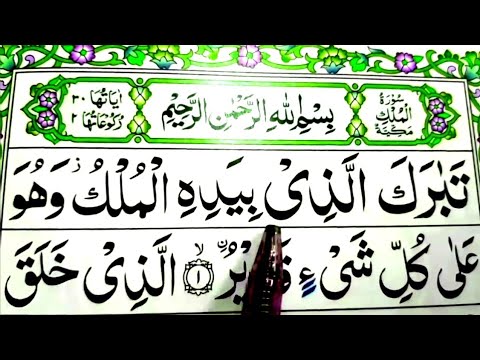 سُوْرَةُ
الْمُلْكِ
مَكِّيَّةٌ
بِسْمِ اللهِ الرَّحْمٰنِ الرَّحِيْمِ
اٰيَاتُهَا ٣٠
رُكُوْعَاتُهَا ٢
تَبٰرَكَ الَّذِىْ بِيَدِهِ الْمُلْكُ ز وَهُوَ
عَلٰى كُلِّ شَىْءٍ ﴿١﴾ ۙ الَّذِىْ خَلَقَ